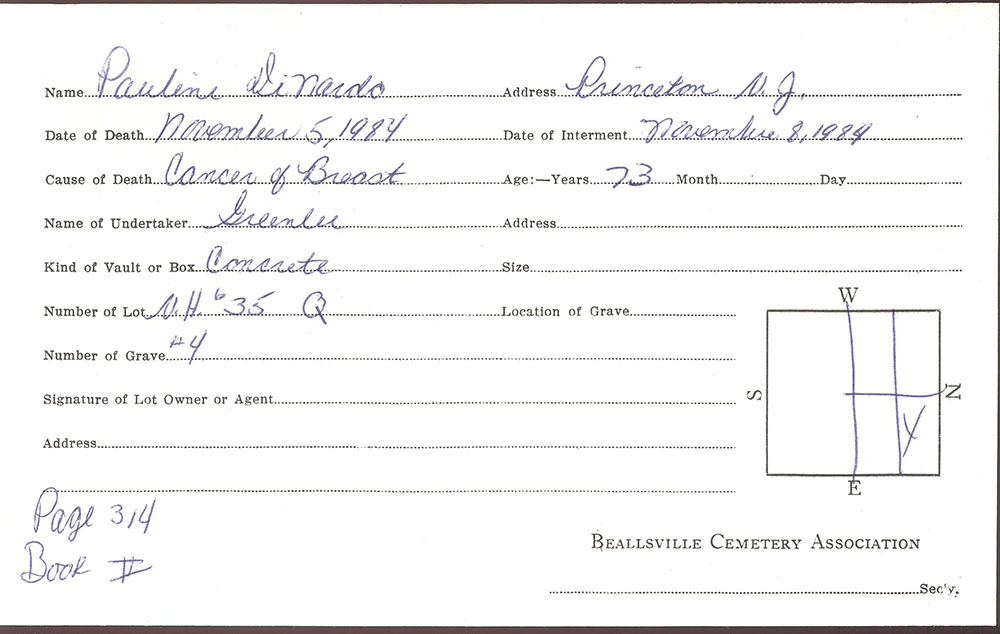 Name Pauline DiNardo Address Princeton N.J.
Date of Death November 5, 1984 Date of Interment November 8, 1984
Cause of Death Cancer of Breast Age:—Years 73 Month Day
Name of Undertaker Greenlee Address
Kind of Vault or Box Concrete Size
Number of Lot N.H. 35 Q Location of Grave
Number of Grave #4
Signature of Lot Owner or Agent
Address
W
S
N
4
E
Page 314
Book II
BEALLSVILLE CEMETERY ASSOCIATION
Sec'y.